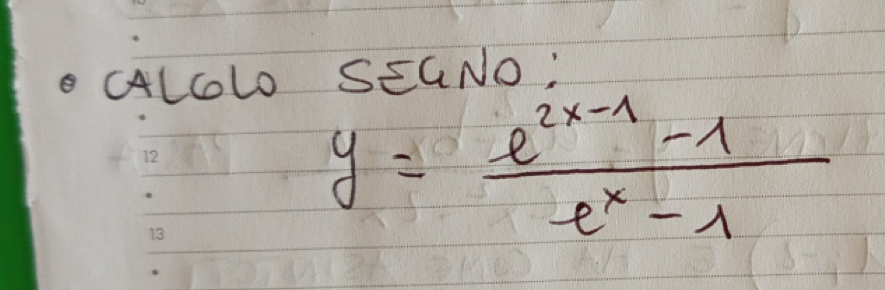 • CALCOLO SEGNO:
12
y = \frac{e^{2x-1} - 1}{e^x - 1}
13